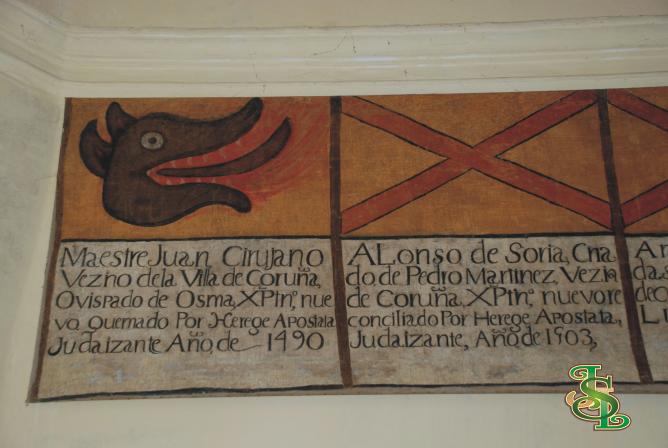 Maestre Juan Cirujano
Vezno de la Villa de Coruña,
Ovispado de Osma, XPtnº, nue
vo Quemado Por Herege Apostata
Judaizante Año, de 1490
ALonso de Soria, Cria
do, de Pedro Martinez, Vezin
de Coruña, XPtnº, nuevo re
conciliado Por Herege Apostata,
Judaizante, Año, de 1503,